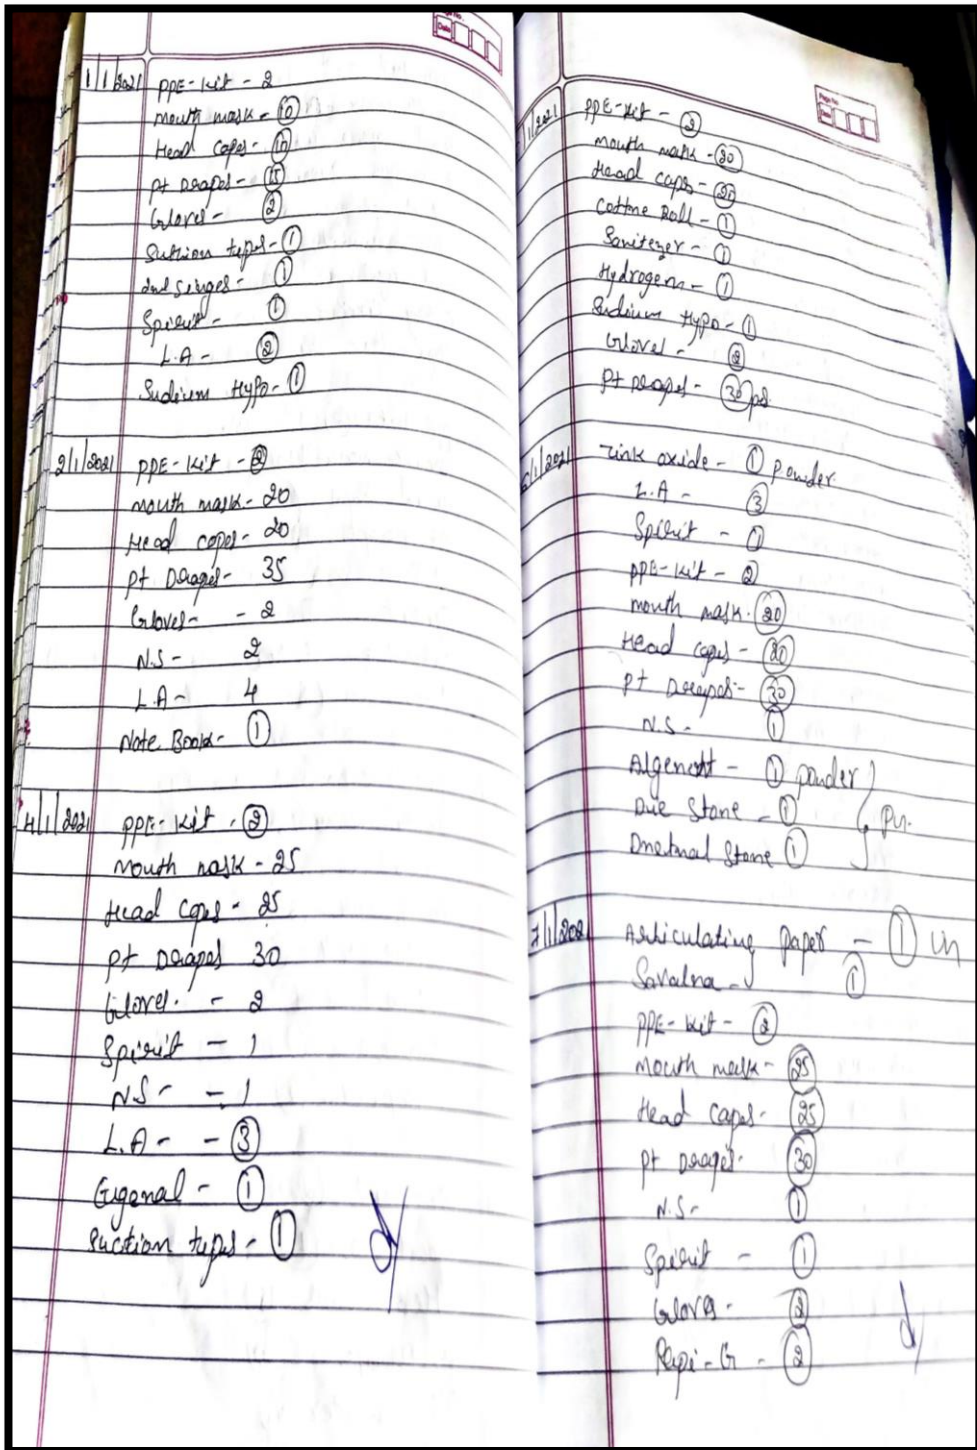 1/1/2021 PPE-kit - 2
Mouth mask - 10
Head capes - 10
Pt Drapes - 15
Gloves - 2
Suction types - 1
Spirit - 1
L.A - 2
Sudium Hypo - 1
2/1/2021 PPE-kit - 2
Mouth mask - 20
Head capes - 20
Pt Drapes - 35
Gloves - - 2
N.S - 2
L.A - 4
Note Book - 1
4/1/2021 PPE-kit - 2
Mouth mask - 25
Head capes - 25
Pt Drapes 30
Gloves - - 2
Spirit - 1
NS - - 1
L.A - - 3
Eugenal - 1
Suction types - 1
Page No.
Date
/1/2021 PPE-kit - 2
Mouth mask - 20
Head caps - 20
Cottne Roll - 1
Sanitezer - 1
Hydrogen - 1
Sudium Hypo - 1
Gloves - 2
Pt Drapes - 30 ps
6/1/2021 Zink oxide - 1 powder
L.A - 3
Spirit - 1
PPE-kit - 2
Mouth mask - 20
Head capes - 20
Pt Drapes - 30
N.S - 1
- 1 powder
Die Stone - 1
Stone 1
7/1/2021 Articulating paper - 1 in
Savalna - 1
PPE-kit - 2
Mouth mask - 25
Head capes - 25
Pt Drapes - 30
N.S - 1
Spirit - 1
Gloves - 2
- G - 2